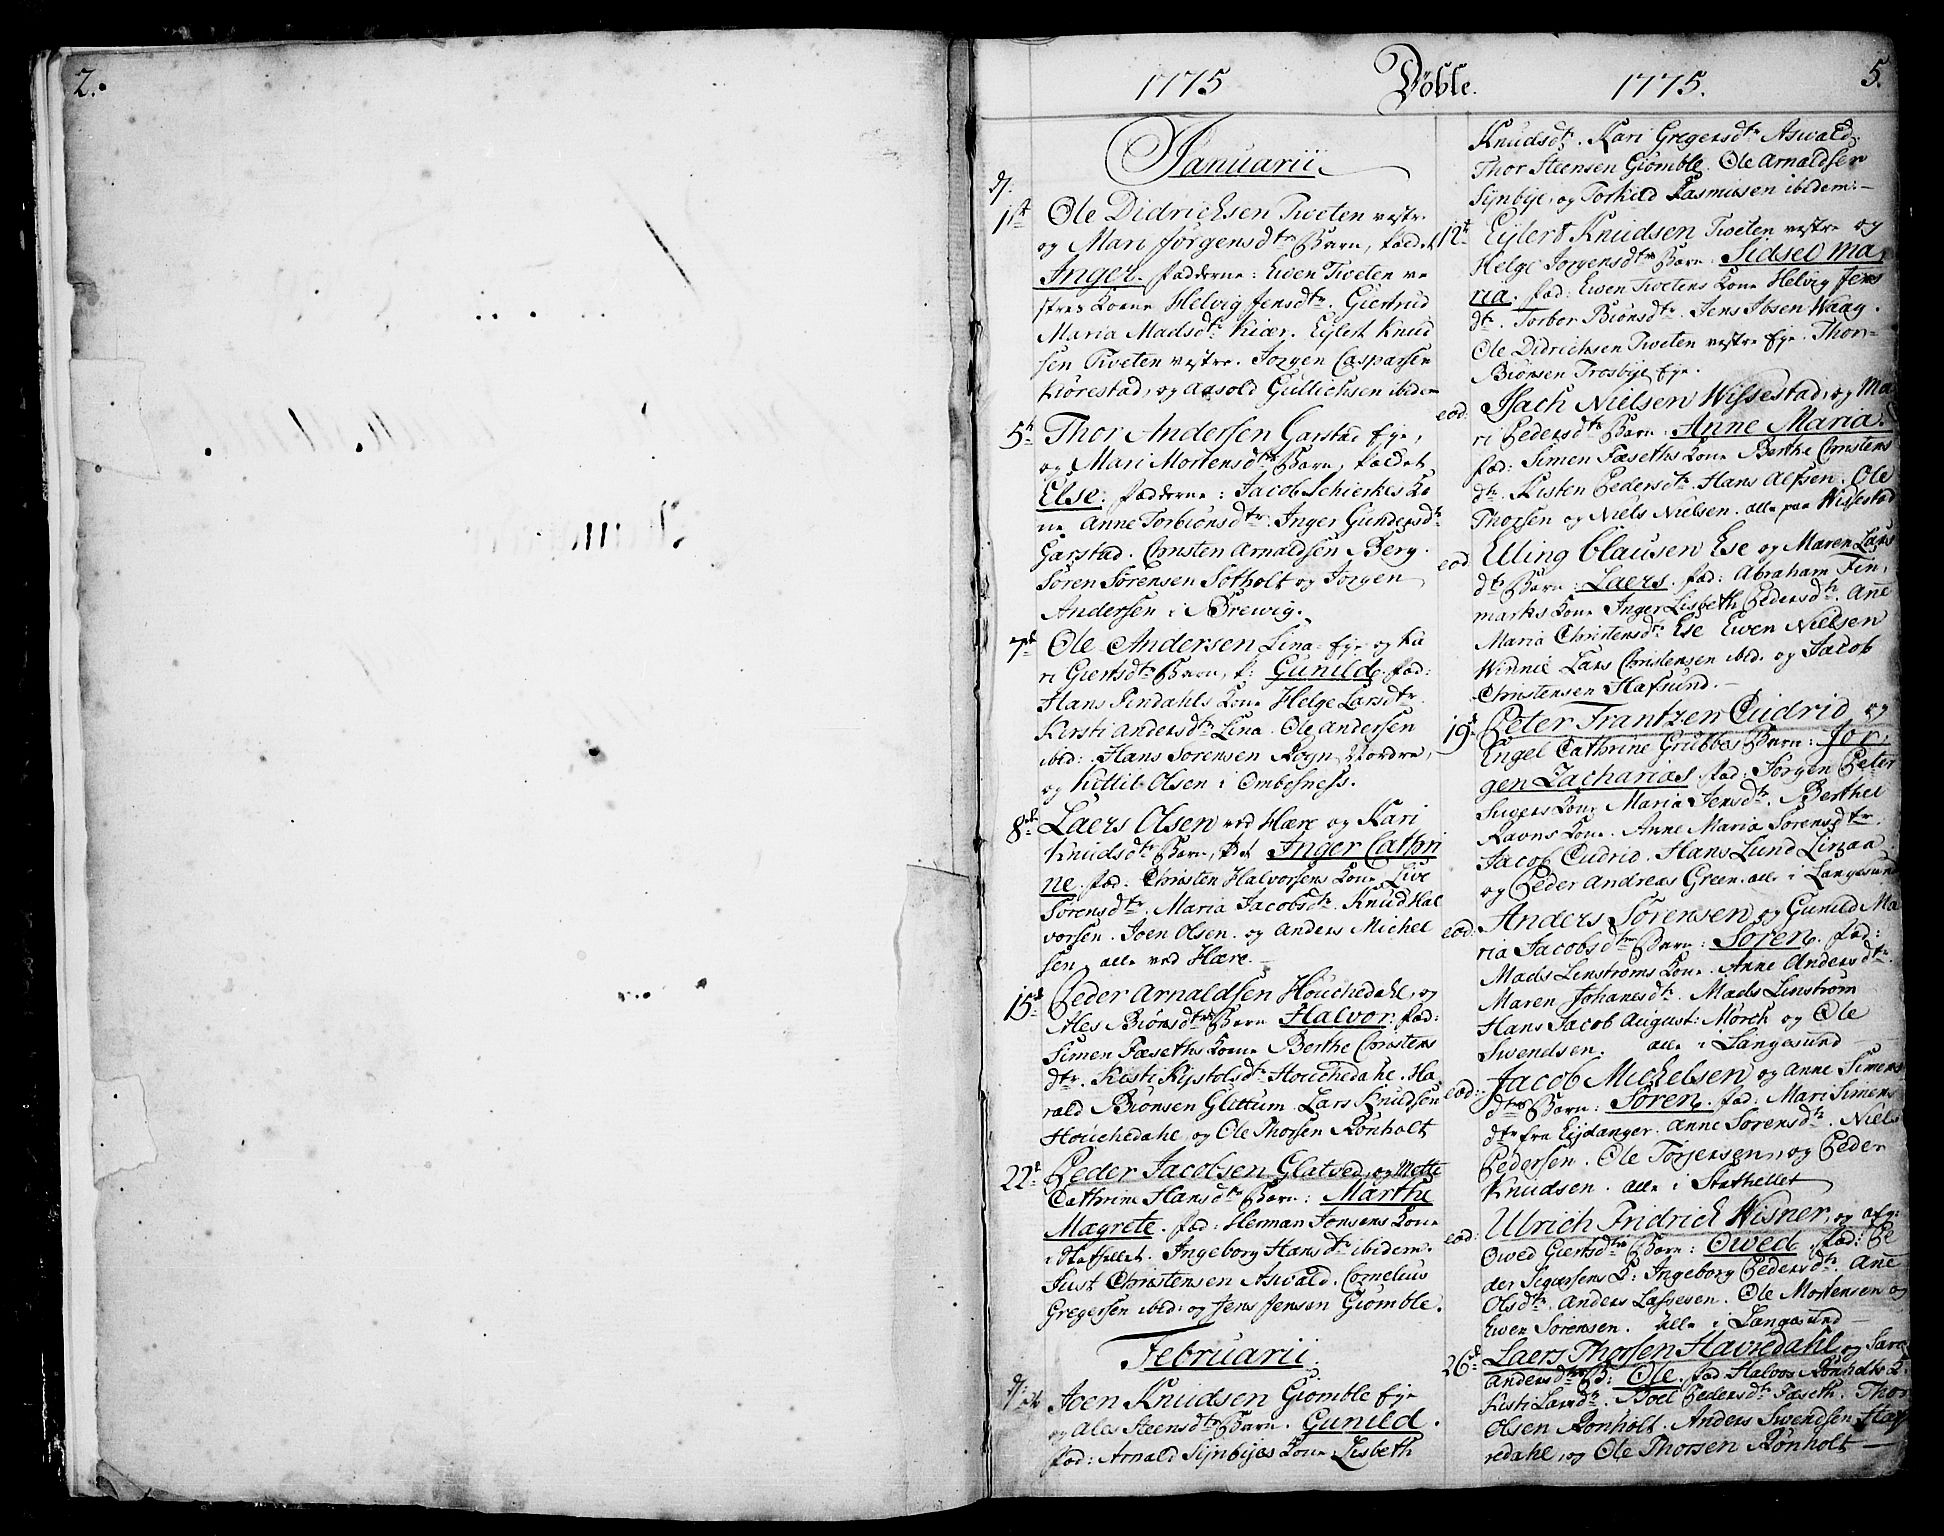 2.
1775 Döbte. 1775. 5.
Januarii
d.
1st Ole Didrichsen Tweten vestre
og Mari Jørgensdtr Barn, kaldet
Inger. fadderne: Ewen Tweten ve
stres Kone Helvig Jensdtr. Giertrud
Maria Madsdtr Kiær. Eylert Knud
sen Tweten vestre. Jørgen Casparsen
Kiørestad, og Aasold Gullichsen ibidem
5te Thor Andersen Garstad Eye,
og Mari Mortensdtr Barn, kaldet
Else: fadderne: Jacob Schierkes Ko
ne Anne Torbiönsdtr. Inger Gundersdtr
Garstad. Christen Arnaldsen Berg.
Sören Sörensen Sotholt og Jørgen
Andersen i Brewig.
7de Ole Andersen Lina Eye og Ka
ri Giertsdtr Barn, k: Gunild. fad:
Hans Findahls Kone Helge Larsdtr.
Kirsti Andersdtr Lina. Ole Andersen
ibid: Hans Sörensen Rogn Nordre,
og Kittil Olsen i Ombesness.
8de Laers Olsen ved Hære og Kari
Knudsdtr Barn, k: Inger Cathri
ne. fad. Christen Halvorsens Kone Live
Sörensdtr. Maria Jacobsdtr. Knud Hal
vorsen. Joen Olsen. og Anders Michel
sen, alle ved Hære.
15de Peder Arnaldsen Houchedahl, og
Ales Biönsdtr Barn Halvor: fad:
Simen Fæseths Kone Berthe Christens
dtr. Kisti Kystolsdtr Houchedahl. Ha
rald Biönsen Glittum. Lars Knudsen
Houchedahl, og Ole Thorsen Rönholt
22de Peder Jacobsen Glatved, og Mette
Cathrine Hansdtr Barn: Marthe
Magrete. fad: Herman Jonsens Kone
i Stathellet. Ingeborg Hansdtr ibidem.
Just Christensen Aswald. Cornelius
Gregersen ibid: og Jens Jensen Giomble.
Februarii
d.
Joen Knudsen Giomble Eye
og Ales Steensdtr Barn. Gunild.
fad: Arnald Synbyes Kone Lisbeth
Knudsdtr. Kari Gregersdtr Aswald.
Thor Steensen Giomble. Ole Arnaldsen
Synbye, og Torkild Rasmusen ibidem.
12te Eylert Knudsen Tweten vestre og
Helge Jorgensdtr Barn: Sidsel Ma
ria. fad: Ewen Twetens Kone Helvig Jens
dtr. Torbor Biönsdtr. Jens Ibsen Waag.
Ole Didrichsen Tweten vestre Eye. Thor
Biönsen Trosbye Eye.
eod: Isach Nielsen Wissestad, og Ma
ri Pedersdtr Barn. Anne Maria.
fad: Simen Fæseths Kone Berthe Christens
dtr. Kisten Pedersdtr. Hans Alfsen. Ole
Thorsen og Niels Nielsen. alle paa Wissestad
eod Elling Clausen Ese og Maren Lars
dtr Barn: Laers. fad: Abraham Fin
marks Kone Inger Lisbeth Pedersdtr. Ane
Maria Christensdtr Ese Ewen Nielsen
Winnie Lars Christensen ibid. og Jacob
Christensen Hafsund.
19de Peter Frantzen Cudrio og
Engel Cathrine Grubbes Barn: Jör
gen Zacharias. fad: Jörgen Peter
Suers Kone Maria Jensdtr. Berthel
Ravns Kone. Anne Maria Sörensdtr.
Jacob Cudrio. Hans Lund Linaa.
og Peder Andreas Green. alle i Langesund
eod: Anders Sörensen og Gunild Ma
ria Jacobsdtr Barn: Sören. fad:
Mads Linströms Kone. Anne Andersdtr.
Maren Johansdtr. Mads Linström
Hans Jacob August: Mörch og Ole
Swendsen. alle i Langesund
eod: Jacob Michelsen og Anne Simens
dtr Barn: Sören. fad: Mari Simens
dtr fra Eydanger. Anne Sörensdtr. Niels
Pedersen. Ole Torjersen, og Peder
Knudsen. alle i Stathellet
eod: Ulrich Fridrich Wisner, og afg:
Owed Giertsdtr Barn: Owed. fad: Pe
der Sigversens K: Ingeborg Pedersdtr. Ane
Olsdtr. Anders Lassesen. Ole Mortensen og
Ewen Sörensen. alle i Langesund
26de Laers Thorsen Havredahl og Sara
Andersdtr B: Ole. fad Halvor Rönholts K:
Kisti Larsdtr. Boel Pedersdtr Fæseth. Thor
Olsen Rönholt. Anders Swendsen Haf
redahl, og Ole Thorsen Rönholt